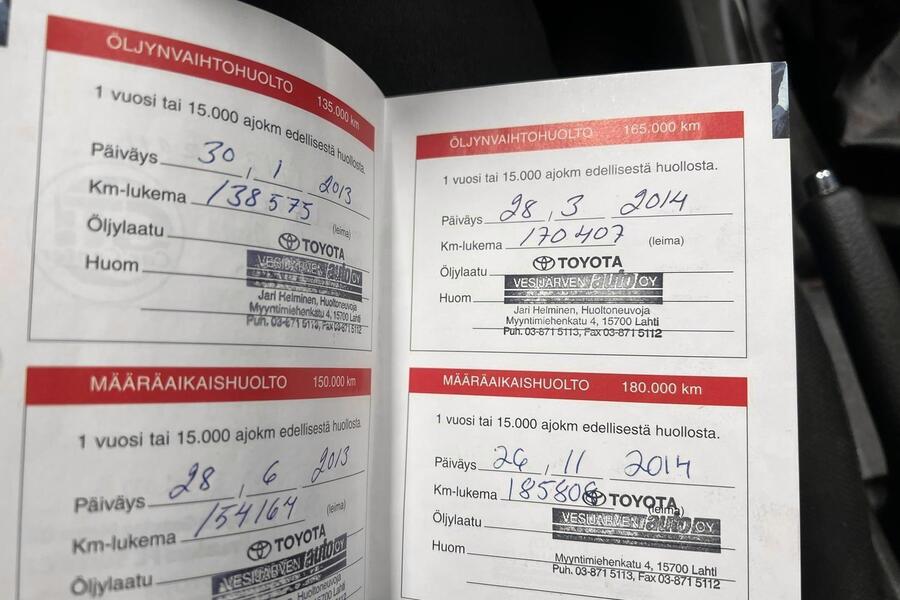 ÖLJYNVAIHTOHUOLTO 135.000 km
1 vuosi tai 15.000 ajokm edellisestä huollosta.
Päiväys 30, 1 2013
Km-lukema 138575
Öljylaatu (leima)
TOYOTA
Huom VESIJÄRVEN auto OY
Jari Helminen, Huoltoneuvoja
Myyntimiehenkatu 4, 15700 Lahti
Puh. 03-871 5113, Fax 03-871 5112
MÄÄRÄAIKAISHUOLTO 150.000 km
1 vuosi tai 15.000 ajokm edellisestä huollosta.
Päiväys 28, 6 2013
Km-lukema 154164 (leima)
TOYOTA
Öljylaatu VESIJÄRVEN auto OY
ÖLJYNVAIHTOHUOLTO 165.000 km
1 vuosi tai 15.000 ajokm edellisestä huollosta.
Päiväys 28, 3 2014
Km-lukema 170407 (leima)
Öljylaatu TOYOTA
Huom VESIJÄRVEN auto OY
Jari Helminen, Huoltoneuvoja
Myyntimiehenkatu 4, 15700 Lahti
Puh. 03-871 5113, Fax 03-871 5112
MÄÄRÄAIKAISHUOLTO 180.000 km
1 vuosi tai 15.000 ajokm edellisestä huollosta.
Päiväys 26, 11 2014
Km-lukema 185806 TOYOTA
(leima)
Öljylaatu VESIJÄRVEN auto OY
Huom
Myyntimiehenkatu 4, 15700 Lahti
Puh. 03-871 5113, Fax 03-871 5112